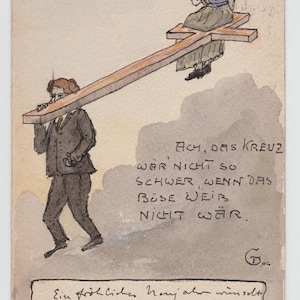 ACH, DAS KREUZ
WAR NICHT SO
SCHWER, WENN DAS
BÖSE WEIB
NICHT WÄR.
Ein fröhliches Neujahr wünscht